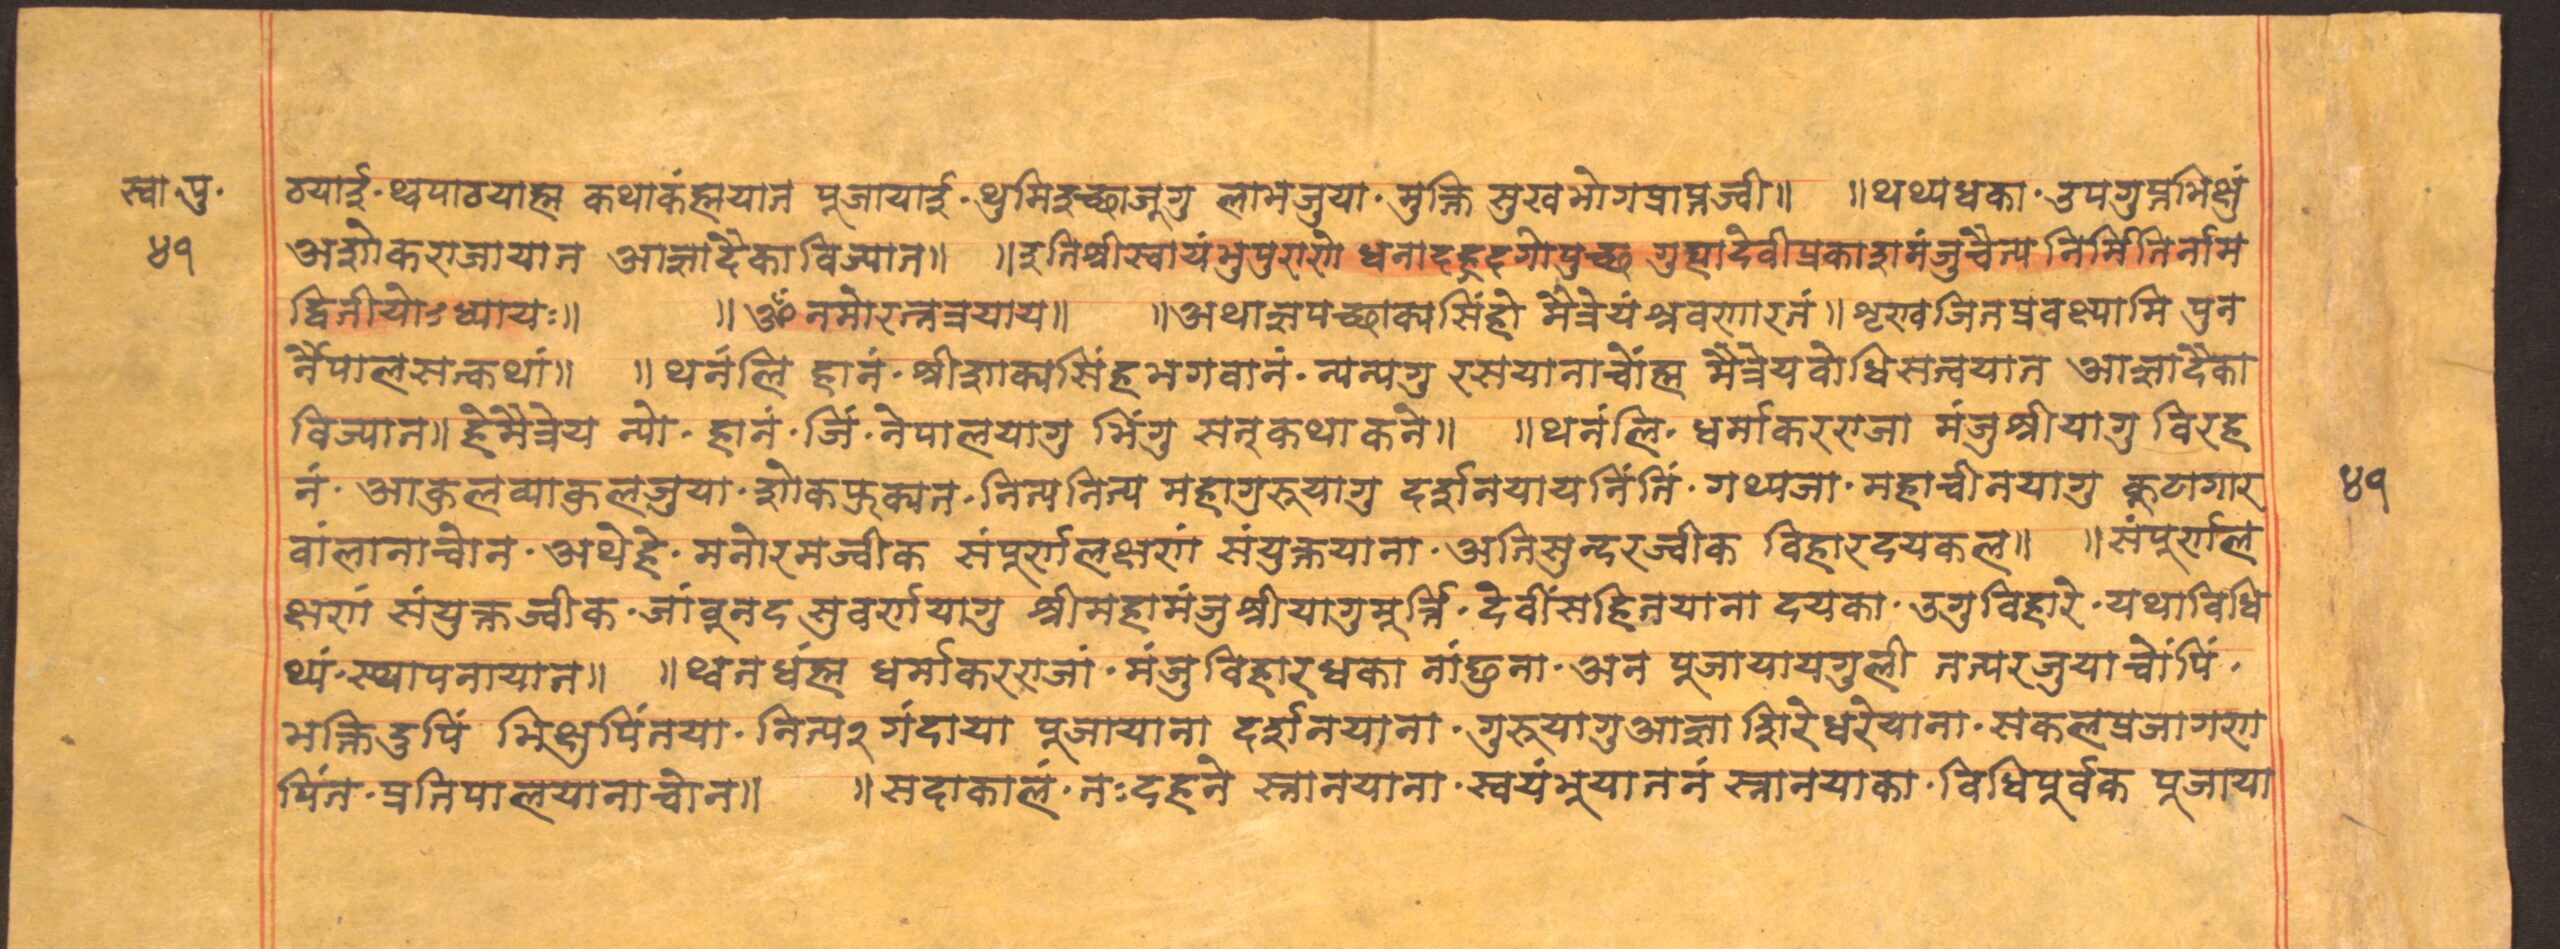 स्वा.पु.
४१
ठयाई· थ्वपाठयाह्म कथाकंह्मयात पूजायाई· थुमिइच्छाजूगु लाभजुया· मुक्ति सुखभोगप्राप्तज्वी॥ ॥थथ्यधका· उपगुप्तभिक्षुं
अशोकराजायात आज्ञादैकाविज्यात॥ ॥इतिश्रीस्वायंभुपुराणे धनादह्रदगोपुच्छ गुह्यादेवीप्रकाशमंजुचैत्य निर्मितिर्नाम
द्वितीयोऽध्यायः॥ ॥ॐ नमोरत्नत्रयाय॥ ॥अथाज्ञपच्छाक्यसिंहो मैत्रेयंश्रवणारतं॥ शृण्वजितप्रवक्ष्यामि पुन
र्नैपालसत्कथां॥ ॥थनंलि हानं· श्रीशाक्यसिंहभगवानं· न्यन्यगु रसयानाचोंह्म मैत्रेयबोधिसत्वयात आज्ञादैका
विज्यात॥ हेमैत्रेय न्यो· हानं· जिं· नेपालयागु भिंगु सत्‌कथाकने॥ ॥थनंलि· धर्माकरराजा मंजुश्रीयागु विरह
नं· आकुलव्याकुलजुया· शोकफुक्यत· नित्यनित्य महागुरुयागु दर्शनयायनिंतिं· गथ्यजा· महाचीनयागु कूठागार
वांलानाच्वोन· अथेहे· मनोरमज्वीक संपूर्णलक्षणं संयुक्तयाना· अतिसुन्दरज्वीक विहारदयकल॥ ॥संपूर्णल
क्षणं संयुक्तज्वीक· जांबूनद सुवर्णयागु श्रीमहामंजुश्रीयागुमूर्त्ति· देवींसहितयाना दयका· उगुविहारे· यथाविधि
थ्यं· स्थापनायात॥ ॥थ्वनधंह्म धर्माकरराजां· मंजुविहारधका नांछुना· अन पूजायायगुली तत्परजुयाच्वोंपिं·
भक्तिदुपिं भिक्षुपिंतया· नित्य२ गंदाया पूजायाना दर्शनयाना· गुरुयागुआज्ञा शिरेधरेयाना· सकलप्रजागण
पिंत· प्रतिपालयानाच्वोन॥ ॥सदाकालं· नःदहने स्नानयाना· स्वयंभूयातनं स्नानयाका· विधिपूर्वक पूजाया
४१